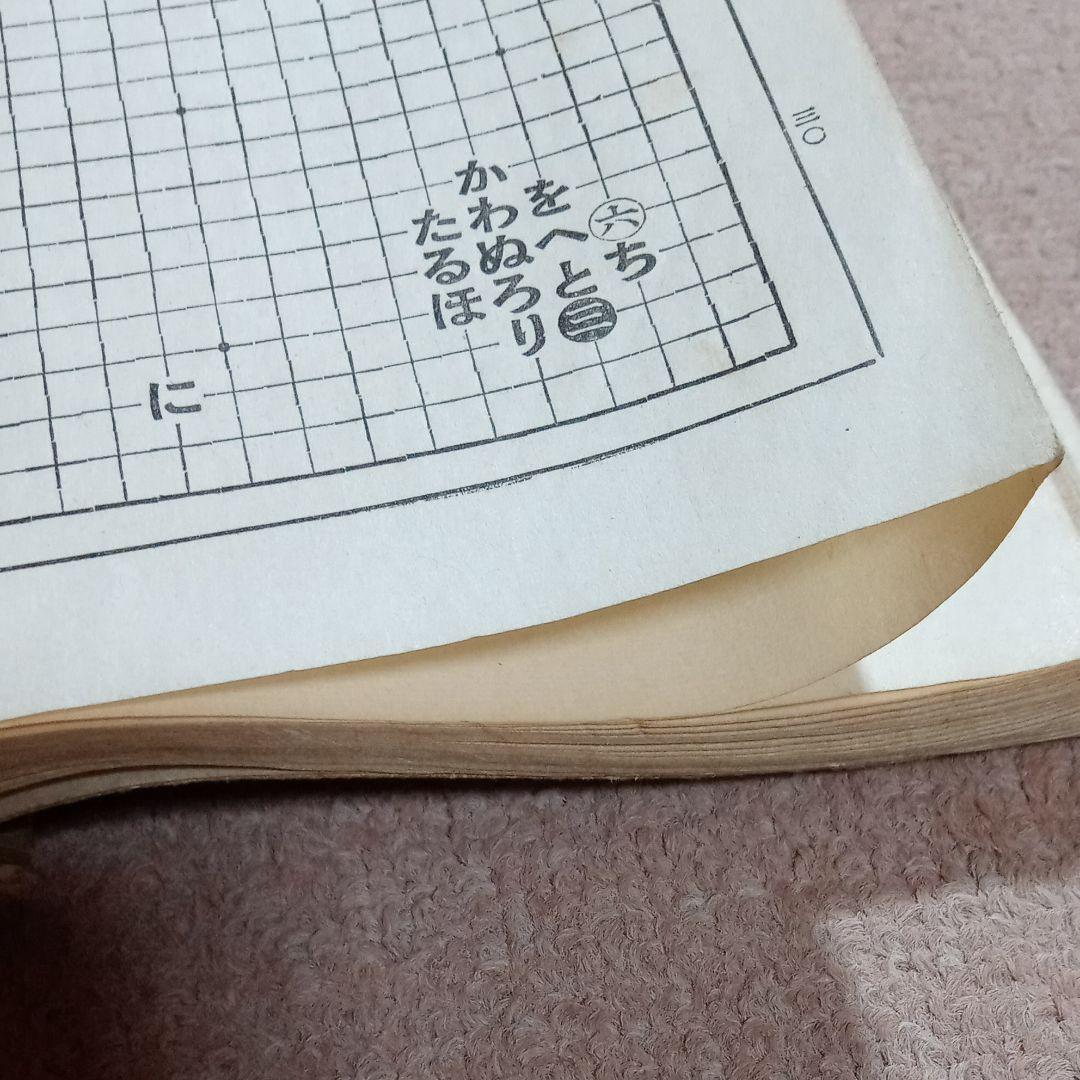 三〇
㊅ち
をへと三
かわぬろり
たるほ
に